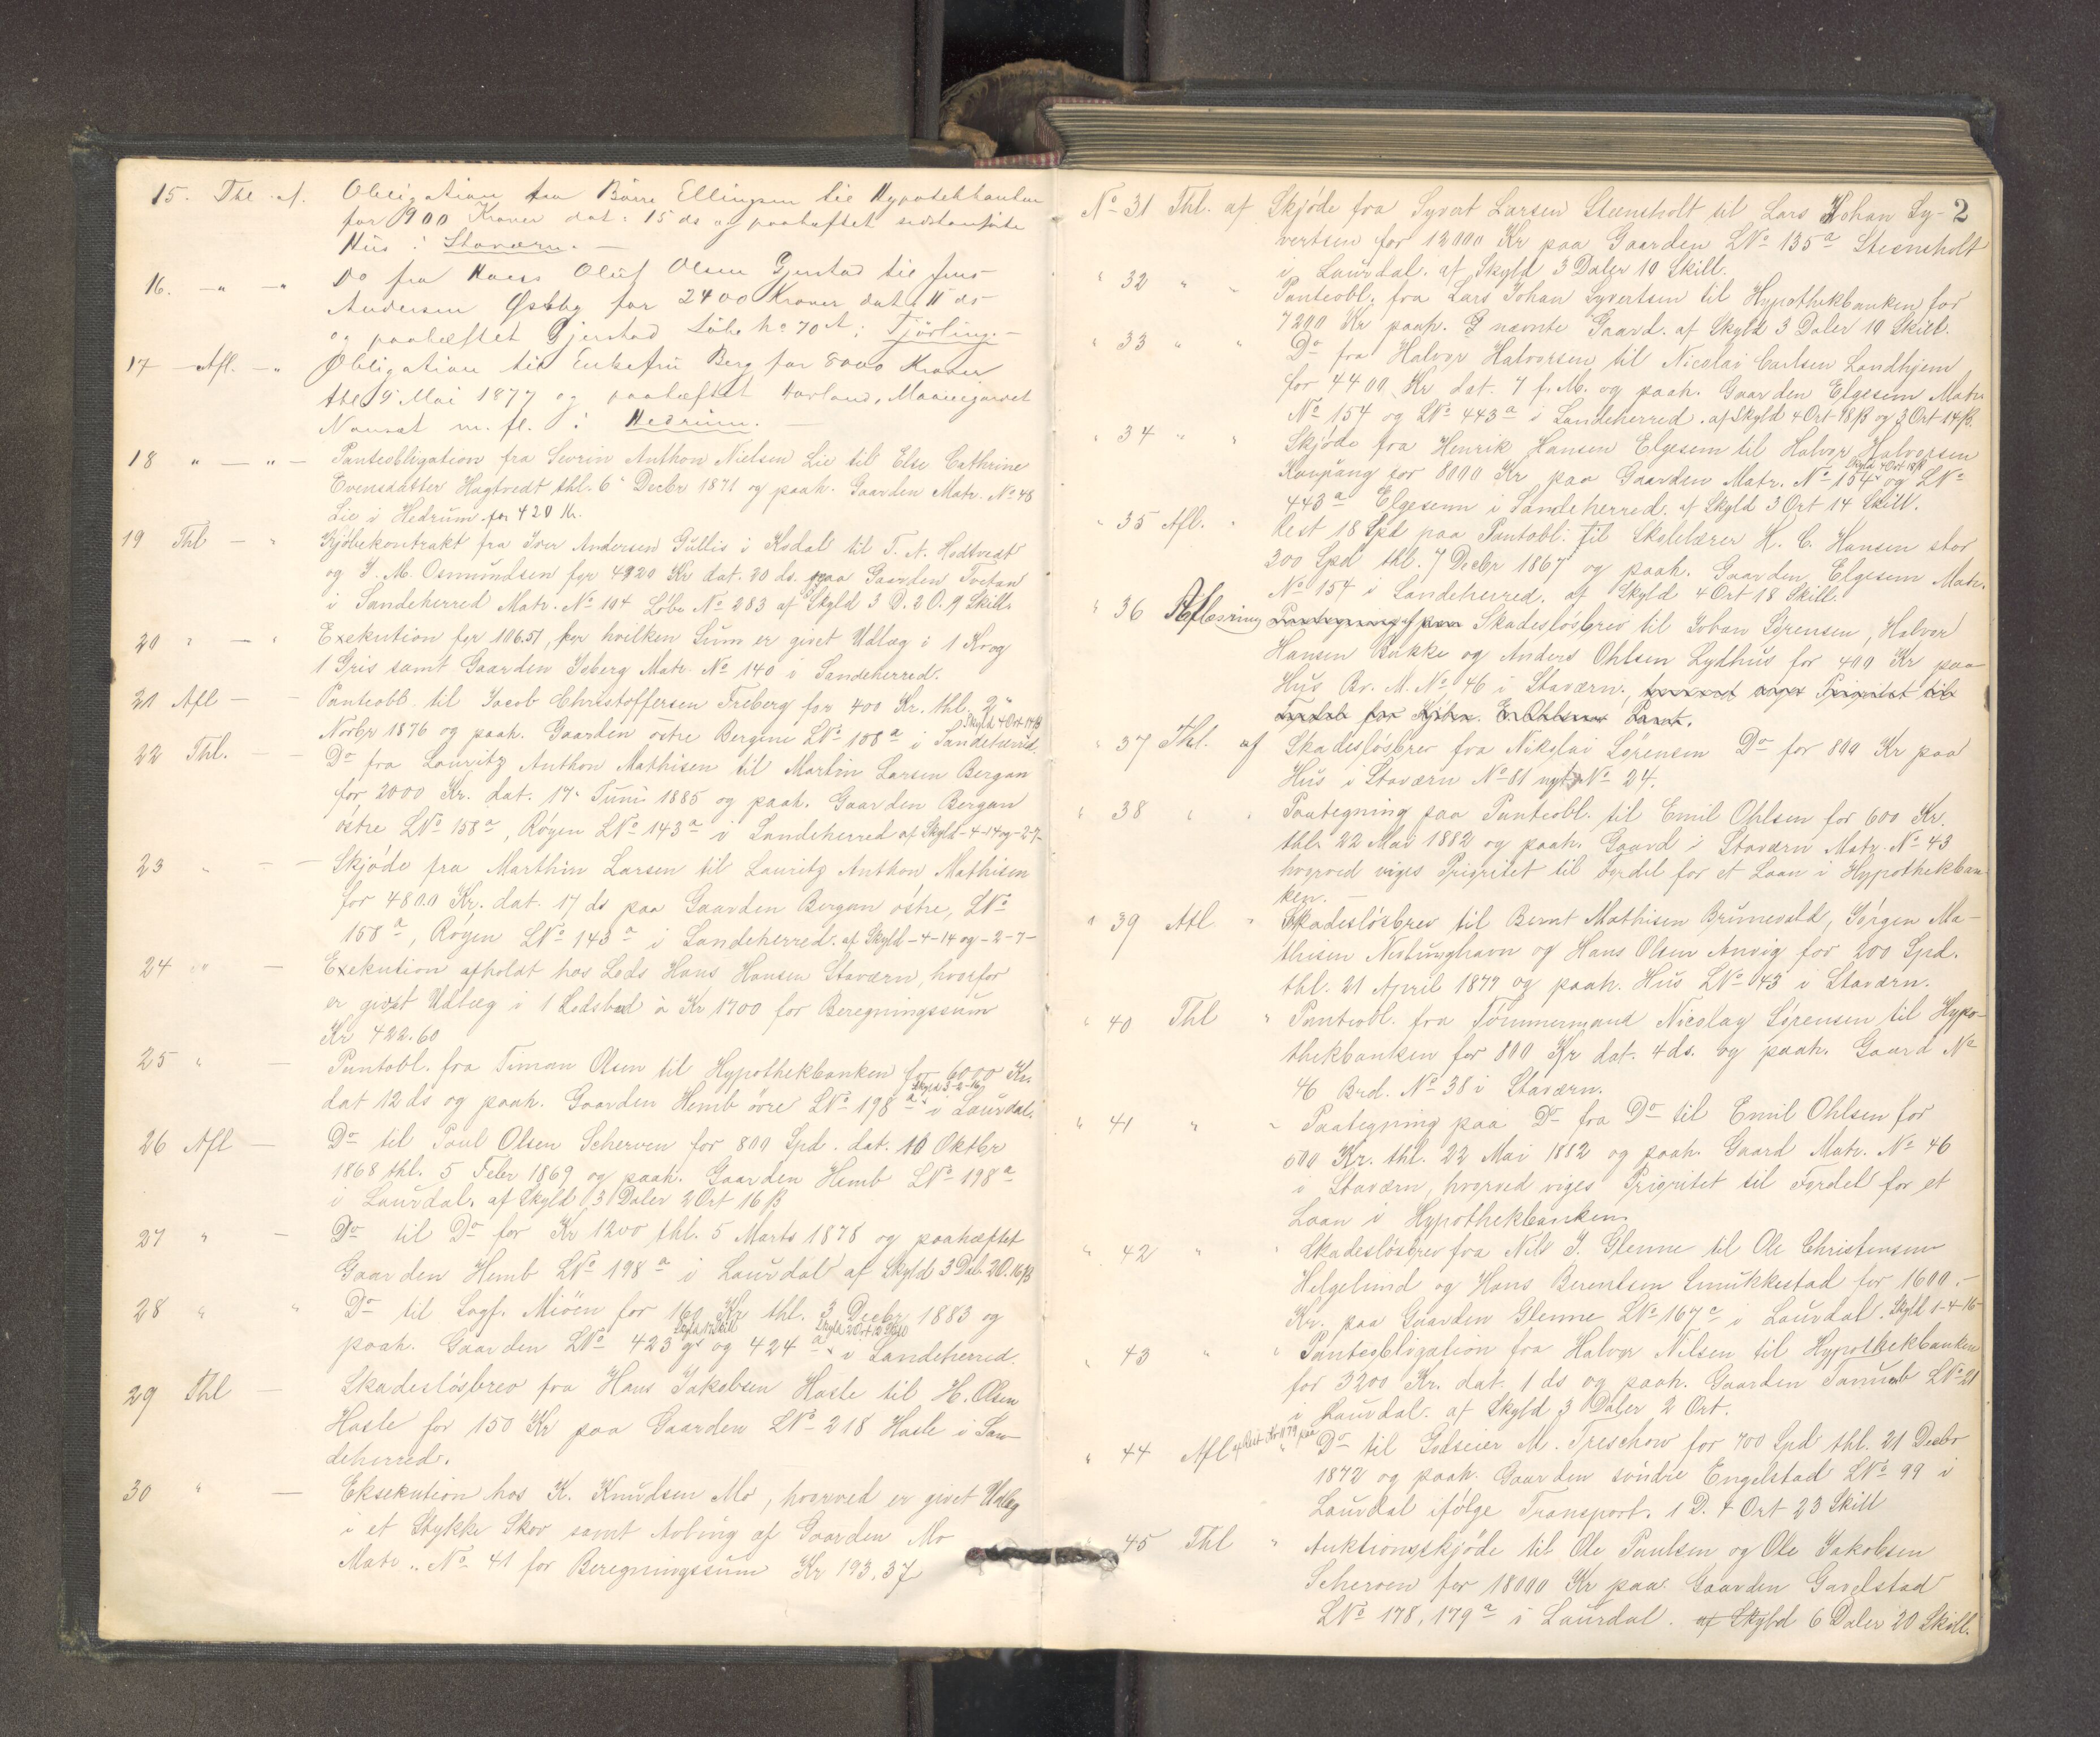 15. Thl. af. Obligation fra Børre Ellingsen til Hypothekbanken
for 900 Kroner dat: 15 ds og paaheftet
Hus i Staværn. —
16. —"— —" Do fra Hans Oluf Olsen Gjerstad til Jens
Andersen Østby for 2400 Kroner dat. 11 ds
og paahæftet Gjerstad Løbe No 70 A i Tjølling. —
17 — Afl. —" Obligation til Enkefru Berg for 8000 Kroner
thl 15 Mai 1877 og paahæftet
Nanset m. fl. i Hedrum. —
18 " — " — Panteobligation fra Sevrin Anthon Nielsen Lie til Else Cathrine
Evensdatter Hagtvedt thl. 6 Decbr 1871 og paah. Gaarden Matr. No 48
Lie i Hedrum for 420 Kr.
19 Thl — " Kjøbekontrakt fra Iver Andersen Gullis i Kodal til T. A. Hodtvedt
og I. M. Osmundsen for 4920 Kr dat. 20 ds. paa Gaarden Tvetan
i Sandeherred Matr. No 104 Løbe No 283 af Skyld 3 D. 2 O. 9 Skill.
20 " — " Exekution for 106.51, for hvilken Sum er givet Udlæg i 1 Ko og
1 Gris samt Gaarden Isberg Matr. No 140 i Sandeherred.
21 Afl — — Panteobl. til Jacob Christoffersen Freberg for 400 Kr. thl. 2"
Skyld 4 Ort 14 ß
Norbr 1876 og paah. Gaarden østre Bergene LNo 108 a i Sandeherred.
22 Thl. — — Do fra Lauritz Anthon Mathisen til Martin Larsen Bergan
for 2000 Kr. dat. 17. Juni 1885 og paah. Gaarden Bergan
østre LNo 158 a, Røyen LNo 143 a i Sandeherred af Skyld -4-14 og -2-7-
23 " — — Skjøde fra Marthin Larsen til Lauritz Anthon Mathisen
for 4800 Kr. dat. 17 ds paa Gaarden Bergan østre, LNo
158 a, Røyen LNo 143 a i Sandeherred. af Skyld -4-14 og -2-7-
24 " — Exekution afholdt hos Lods Hans Hansen Staværn, hvorfor
er givet Udlæg i 1 Lodsbaad à Kr 1700 for Beregningssum
Kr 422.60
25 " — Pantobl. fra Timan Olsen til Hypothekbanken for 6000 Kr.
Skyld 3-2-16
dat 12 ds og paah. Gaarden Hemb øvre LNo 198 a i Laurdal.
26 Afl — Do til Poul Olsen Scherven for 800 Spd. dat. 10 Oktbr
1868 thl. 5 Febr 1869 og paah. Gaarden Hemb LNo 198 a
i Laurdal. af Skyld 3 Daler 2 Ort 16 ß
27 " — Do til Do for Kr 1200 thl. 5 Marts 1878 og paahæftet
Gaarden Hemb LNo 198 a i Laurdal af Skyld 3 Dal. 2 O. 16 ß
28 " " Do til Sagf. Miöen for 160 Kr thl. 3 Decbr 1883 og
paah. Gaarden LNo 423 og 424 a i Sandeherred.
29 Thl — Skadesløsbrev fra Hans Jakobsen Hasle til H. Olsen
Hasle for 150 Kr paa Gaarden LNo 218 Hasle i San-
deherred.
30 " — Eksekution hos K. Knudsen Mo, hvorved er givet Udlæg
i et Stykke Skov samt Avling af Gaarden Mo
Matr. No 41 for Beregningssum Kr 193.37
2
No 31 Thl. af Skjøde fra Syvert Larsen Steensholt til Lars Johan Sy-
vertsen for 12000 Kr paa Gaarden LNo 135 a Steensholt
i Laurdal. af Skyld 3 Daler 10 Skill.
" 32 " " Panteobl. fra Lars Johan Syvertsen til Hypothekbanken for
7200 Kr paah. nævnte Gaard. af Skyld 3 Daler 10 Skill.
" 33 " " Do fra Halvor Halvorsen til Nicolai Carlsen Sandhjem
for 4400 Kr dat. 7 f. M. og paah. Gaarden Elgesem Matr.
No 154 og LNo 443 a i Sandeherred. af Skyld 4 Ort 18 ß og 3 Ort 14 ß.
" 34 " " Skjøde fra Henrik Hansen Elgesem til Halvor Halvorsen
Skyld 4 Ort 18 ß
Kaupang for 8000 Kr paa Gaarden Matr. No 154 og LNo
443 a Elgesem i Sandeherred. af Skyld 3 Ort 14 Skill.
" 35 Afl. " Rest 18 Spd paa Pantobl. til Skolelærer H. C. Hansen stor
300 Spd thl. 7 Decbr 1867 og paah. Gaarden Elgesem Matr.
No 154 i Sandeherred. af Skyld 4 Ort 18 Skill.
" 36 Aflæsning Paategning af paa Skadesløsbrev til Johan Sørensen, Halvor
Hansen Bakke og Anders Ohlsen Lydhus for 400 Kr paa
Hus Br. M. No 46 i Staværn, hvorved viges Prioritet til
Fordel for Kjbm. E. Ohlsens Pant.
" 37 Thl. af Skadesløsbrev fra Nikolai Sørensen Do for 800 Kr paa
Hus i Staværn No 81 nyt No 24.
" 38 " " Paategning paa Panteobl. til Emil Ohlsen for 600 Kr.
thl. 22 Mai 1882 og paah. Gaard i Staværn Matr. No 43
hvorved viges Prioritet til Fordel for et Laan i Hypothekban-
ken. —
" 39 Afl " Skadesløsbrev til Bernt Mathisen Brunevald, Jørgen Ma-
thisen Nevlunghavn og Hans Olsen Anvig for 200 Spd.
thl. 21 April 1877 og paah. Hus LNo 43 i Staværn.
" 40 Thl " Panteobl. fra Tømmermand Nicolay Sørensen til Hypo-
thekbanken for 800 Kr dat. 4 ds. og paah. Gaard No
46 Brd. No 38 i Staværn.
" 41 " " Paategning paa Do fra Do til Emil Ohlsen for
600 Kr. thl. 22 Mai 1882 og paah. Gaard Matr. No 46
i Staværn, hvorved viges Prioritet til Fordel for et
Laan i Hypothekbanken.
" 42 " " Skadesløsbrev fra Nils J. Glenne til Ole Christensen
Helgelund og Hans Berentsen Smukkestad for 1600.-
Kr. paa Gaarden Glenne LNo 167 c i Laurdal. Skyld 1-4-16
" 43 " " Panteobligation fra Halvor Nilsen til Hypothekbanken
for 3200 Kr. dat. 1 ds og paah. Gaarden LNo 21
i Laurdal. af Skyld 3 Daler 2 Ort.
" 44 Afl af Rest Kr 1179 paa Do til Godseier M. Treschow for 700 Spd thl. 21 Decbr
1872 og paah. Gaarden søndre Engelstad LNo 99 i
Laurdal ifølge Transport. 1 D. 4 Ort 23 Skill
" 45 Thl " Auktionsskjøde til Ole Paulsen og Ole Jakobsen
Scherven for 18000 Kr paa Gaarden Gavelstad
LNo 178, 179 a i Laurdal. af Skyld 6 Daler 20 Skill.